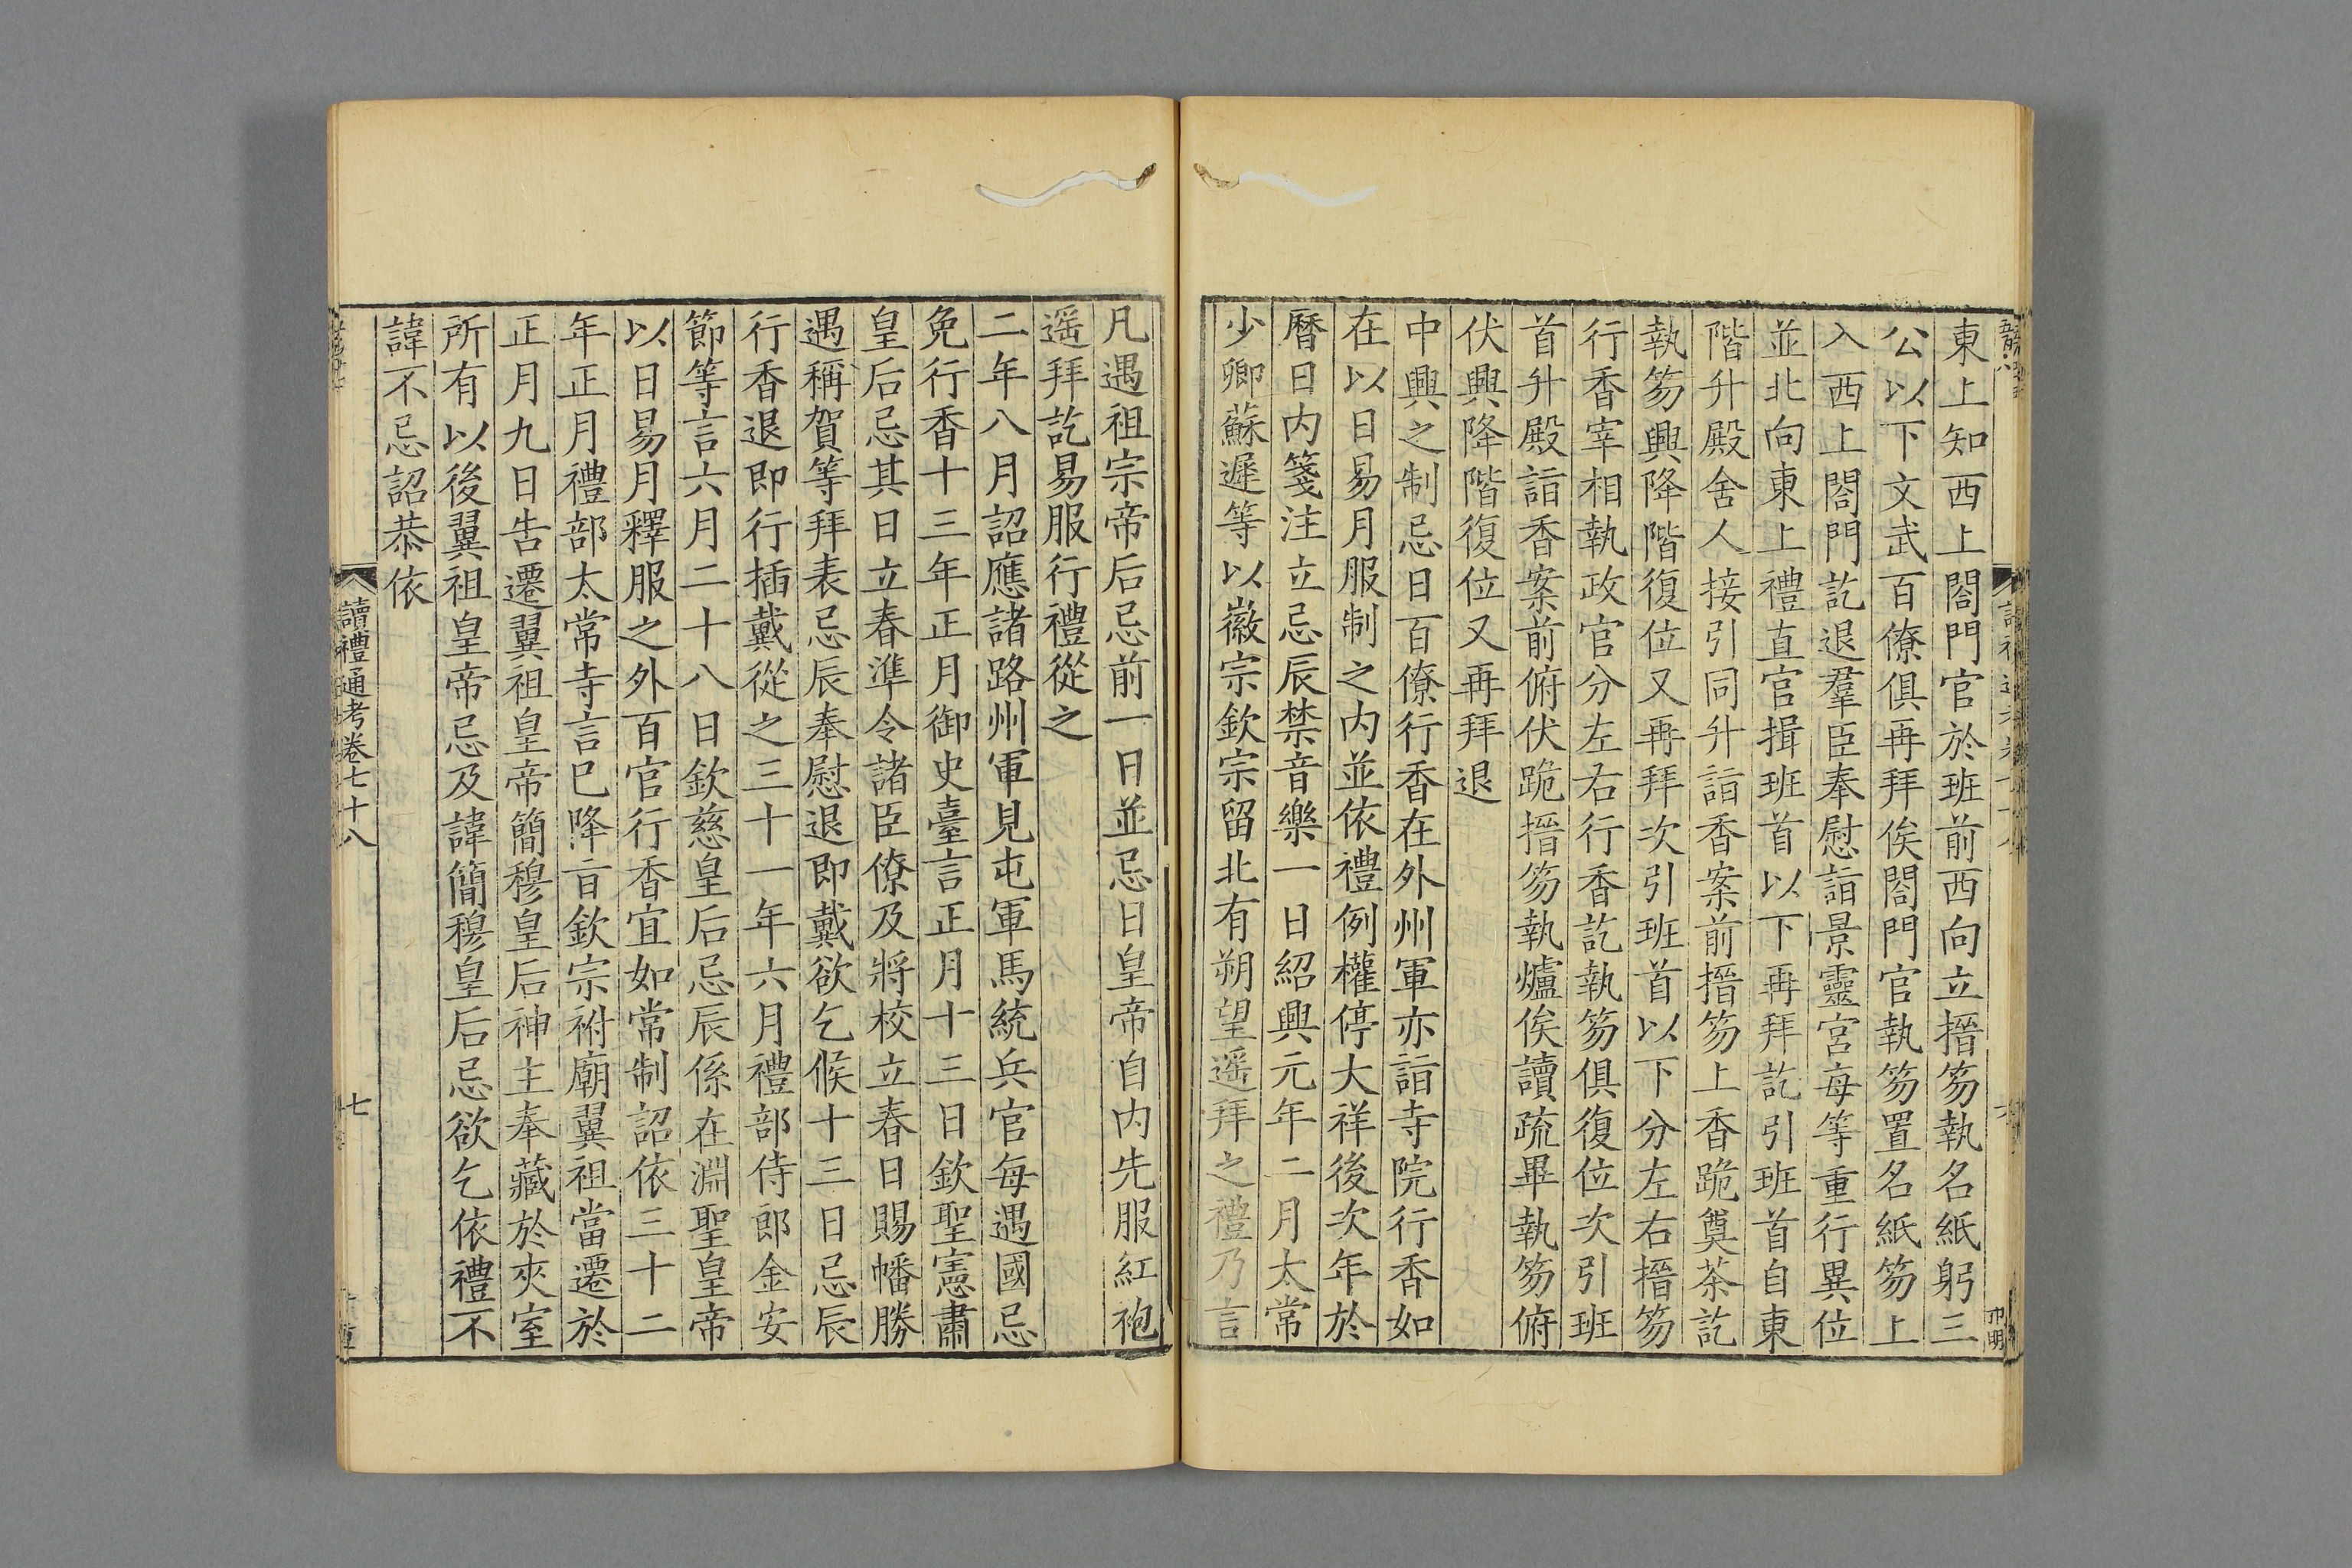 東上知西上閤門官於班前西向立搢笏執名紙躬三
公以下文武百僚俱再拜俟閤門官執笏置名紙笏上
入西上閤門訖退羣臣奉慰詣景靈宮每等重行異位
並北向東上禮直官揖班首以下再拜訖引班首自東
階升殿舍人接引同升詣香案前搢笏上香跪奠茶訖
執笏興降階復位又再拜次引班首以下分左右搢笏
行香宰相執政官分左右行香訖執笏俱復位次引班
首升殿詣香案前俯伏跪搢笏執爐俟讀疏畢執笏俯
伏興降階復位又再拜退
中興之制忌日百僚行香在外州軍亦詣寺院行香如
在以日易月服制之内並依禮例權停大祥後次年於
曆日内箋注立忌辰禁音樂一日紹興元年二月太常
少卿蘇遲等以徽宗欽宗留北有朔望遥拜之禮乃言
凡遇祖宗帝后忌前一日並忌日皇帝自内先服紅袍
遥拜訖易服行禮從之
二年八月詔應諸路州軍見屯軍馬統兵官每遇國忌
免行香十三年正月御史臺言正月十三日欽聖憲肅
皇后忌其日立春準令諸臣僚及將校立春日賜幡勝
遇稱賀等拜表忌辰奉慰退即戴欲乞候十三日忌辰
行香退即行插戴從之三十一年六月禮部侍郎金安
節等言六月二十八日欽慈皇后忌辰係在淵聖皇帝
以日易月釋服之外百官行香宜如常制詔依三十二
年正月禮部太常寺言已降旨欽宗祔廟翼祖當遷於
正月九日告遷翼祖皇帝簡穆皇后神主奉藏於夾室
所有以後翼祖皇帝忌及諱簡穆皇后忌欲乞依禮不
諱不忌詔恭依
讀禮通考卷七十八
七